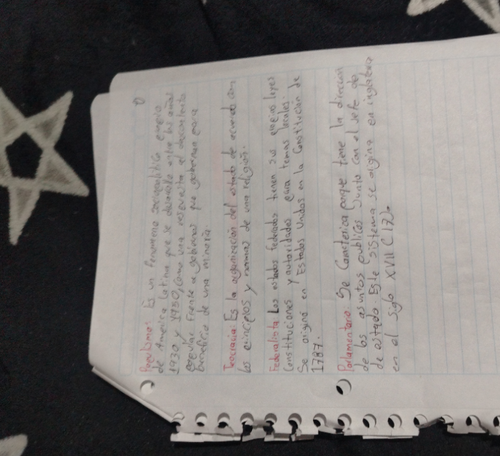 Populismo: Es un fenomeno sociopolitico
de America latina que se desarrolo entre los años
1930 y 1950, como una respuesta al descontento
popular frente a gobiernos que gobiernan para
beneficio de una mineria
Teocracia: Es la organización del estado de acuerdo con
los principios y normas de una religion.
Federalista: Los estados federados tienen sus propias leyes
Constituciones y autoridades para temas locales.
Se originó en Estados Unidos en la Constitución de
1787.
Parlamentario: Se Caracteriza porque tiene la direccion
de los asuntos publicos Junto con el Jefe de
de estado Este sistema se origina en inglaterra
en el Siglo XVII (17).